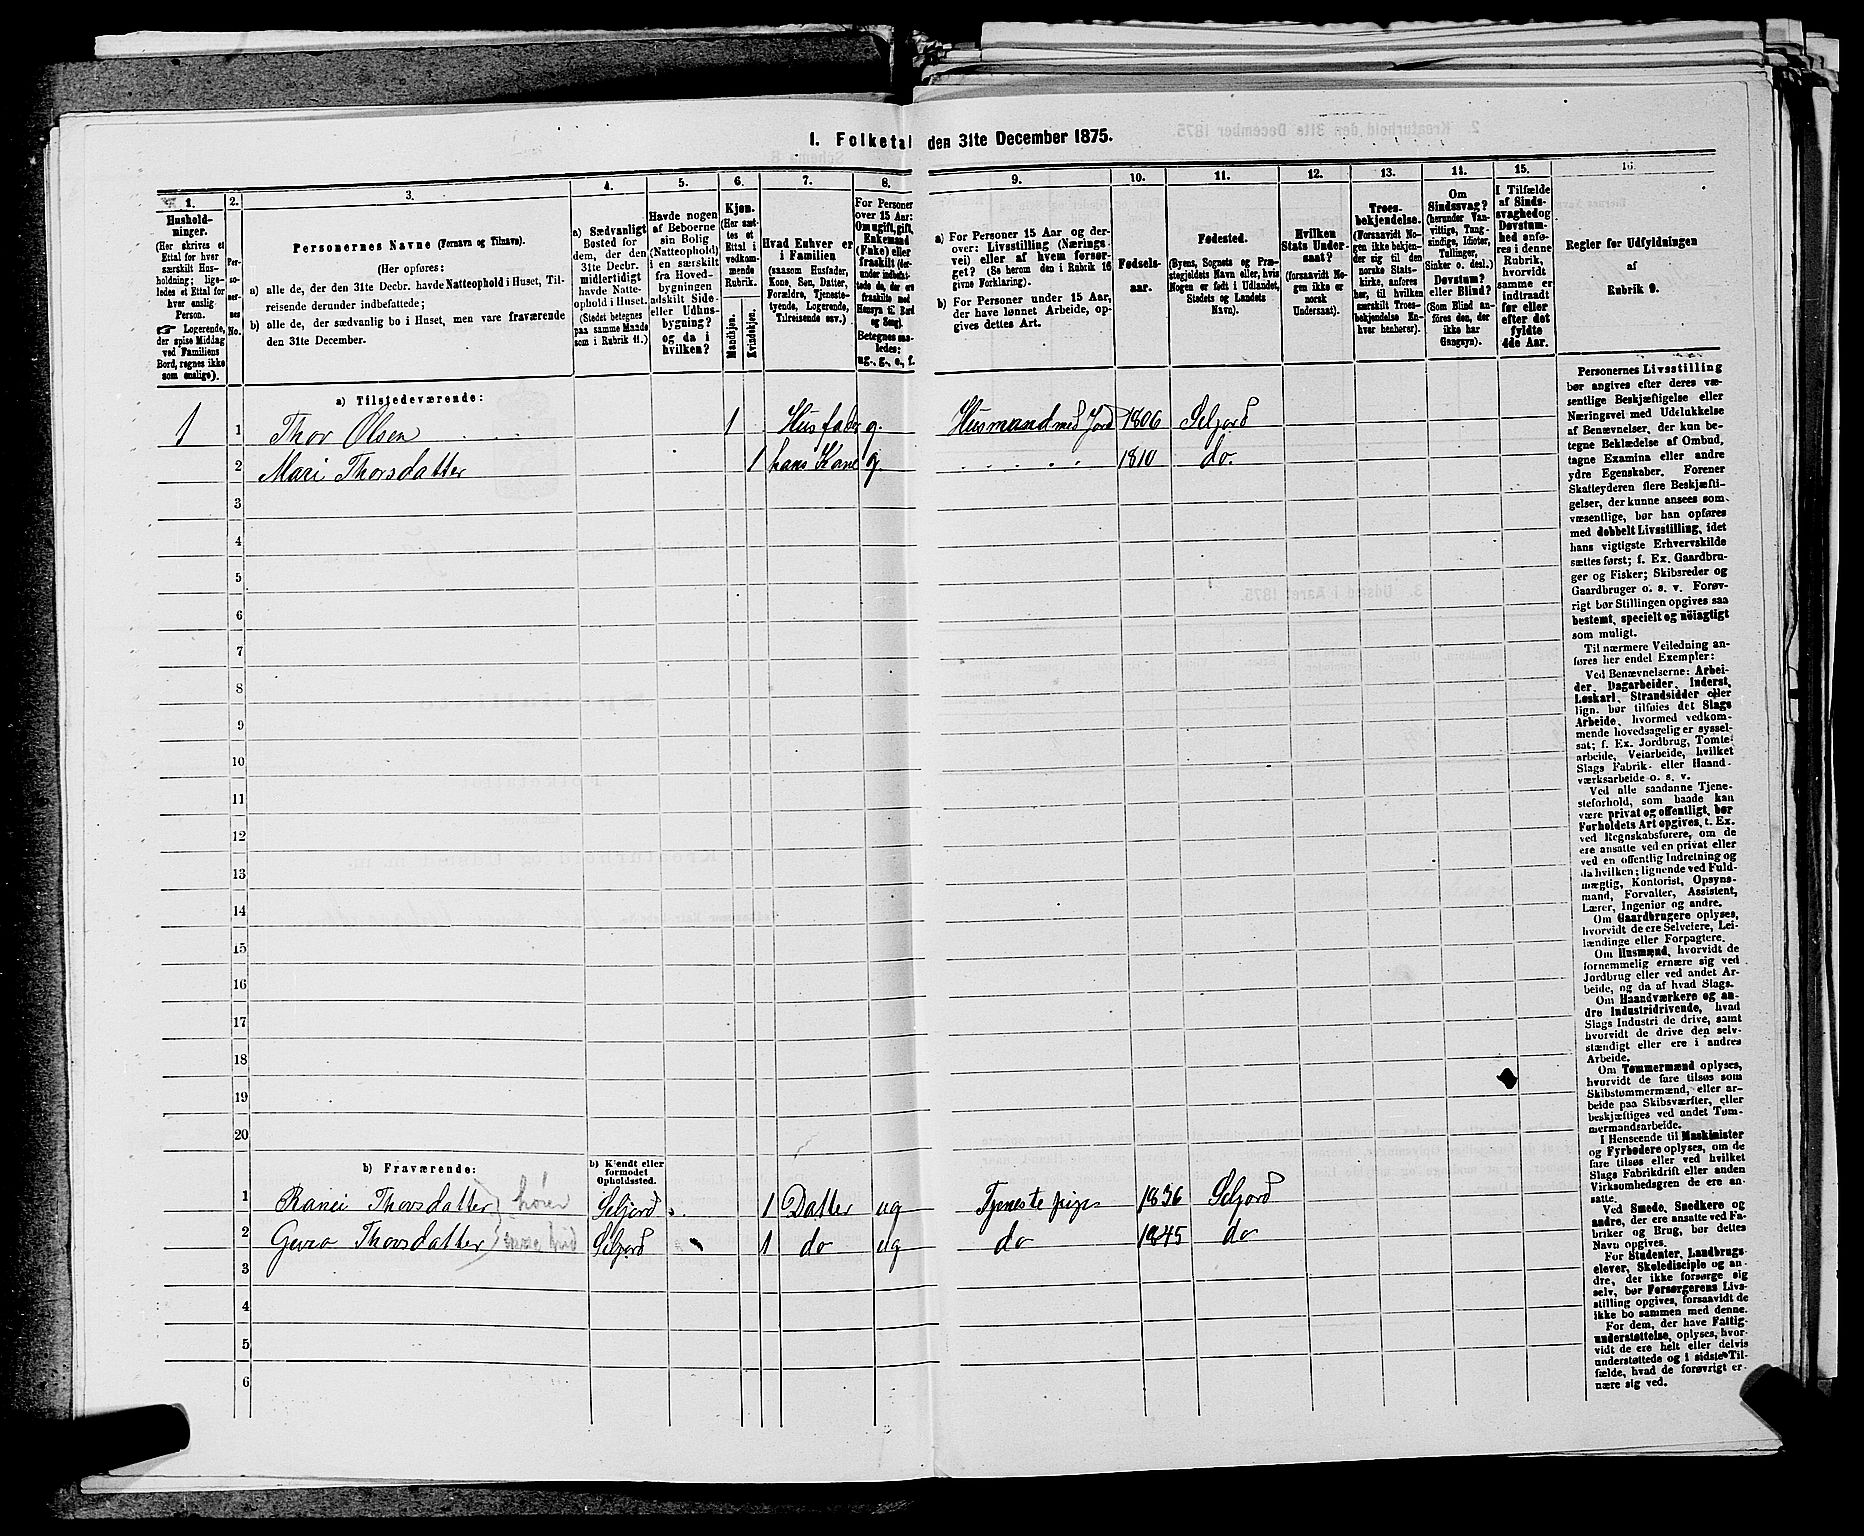 1. Folketal den 31te December 1875.
1.
Hushold-
ninger.
(Her skrives et
Ettal for hver
særskilt Hus-
holdning; lige-
ledes et Ettal for
hver enslig
Person.
☞ Logerende,
der spise Middag
ved Familiens
Bord, regnes ikke
som enslige).
2.
Per-
so-
ner-
nes
No.
3.
Personernes Navne (Fornavn og Tilnavn).
(Her opføres:
a) alle de, der den 31te Decbr. havde Natteophold i Huset, Til-
reisende derunder indbefattede;
b) alle de, der sædvanlig bo i Huset, men vare fraværende
den 31te December.
4.
a) Sædvanligt
Bosted for
dem, der den
31te Decbr.
midlertidigt
havde Natte-
ophold i Huset.
(Stedet betegnes
paa samme Maade
som i Rubrik 11.)
5.
Havde nogen
af Beboerne
sin Bolig
(Natteophold)
i en særskilt
fra Hoved-
bygningen
adskilt Side-
eller Udhus-
bygning?
og da i
hvilken?
6.
Kjøn.
(Her sæt-
tes et
Ettal i
vedkom-
mende
Rubrik.
Mandkjøn.
Kvindekjøn.
7.
Hvad Enhver er
i Familien
(saasom Husfader,
Kone, Søn, Datter,
Forældre, Tjeneste-
tyende, Logerende,
Tilreisende osv.)
8.
For Personer
over 15 Aar:
Om ugift, gift,
Enkemand
(Enke) eller
fraskilt (der-
under indbefat-
tede de, der ere
fraskilte med
Hensyn til Bord
og Seng).
Betegnes saa-
ledes:
ug., g., e., f.
9.
a) For Personer 15 Aar og der-
over: Livsstilling (Nærings-
vei) eller af hvem forsør-
get? (Se herom den i Rubrik 16
givne Forklaring).
b) For Personer under 15 Aar,
der have lønnet Arbeide, op-
gives dettes Art.
10.
Fødsels-
aar.
11.
Fødested.
(Byens, Sognets og Præ-
stegjeldets Navn eller, hvis
Nogen er født i Udlandet,
Stedets og Landets
Navn).
12.
Hvilken
Stats Under-
saat?
(forsaavidt No-
gen ikke er
norsk
Undersaat).
13.
Troes-
bekjendelse.
(Forsaavidt No-
gen ikke bekjen-
der sig til den
norske Stats-
kirke, anføres
her, til hvilken
særskilt Troes-
bekjendelse En-
hver henhører).
14.
Om
Sindssvag?
(herunder Van-
vittige, Tung-
sindige, Idioter,
Tullinger,
Sinker o. desl.)
Døvstum?
eller Blind?
(Som Blind an-
føres den, der
ikke har
Gangsyn).
15.
I Tilfælde
af Sinds-
svaghed og
Døvstum-
hed anfø-
res i denne
Rubrik,
hvorvidt
samme er
indtraadt
før eller
efter det
fyldte
4de Aar.
16.
Regler for Udfyldningen
af
Rubrik 9.
a) Tilstedeværende:
1 1 Thor Olsen 1 Husfader g. Husmand med Jord 1806 Seljord
2 Mari Thorsdatter 1 hans Kone g. 1810 do.
3
4
5
6
7
8
9
10
11
12
13
14
15
16
17
18
19
20
b) Fraværende:
b) Kjendt eller
formodet
Opholdssted.
1 Ranei Thorsdatter Seljord 1 Datter ug Tjenestepige 1836 Seljord
2 Thorsdatter Seljord 1 do ug do 1845 do
3
4
5
6
Personernes Livsstilling
bør angives efter deres væ-
sentlige Beskjæftigelse eller
Næringsvei med Udelukkelse
af Benævnelser, der kun be-
tegne Beklædelse af Ombud,
tagne Examina eller andre
ydre Egenskaber. Forener
Skatteyderen flere Beskjæfti-
gelser, der kunne ansees som
væsentlige, bør han opføres
med dobbelt Livsstilling, idet
hans vigtigste Erhvervskilde
sættes først; f. Ex. Gaardbru-
ger og Fisker; Skibsreder og
Gaardbruger o. s. v. Forøv-
rigt bør Stillingen opgives saa
bestemt, specielt og nöiagtigt
som muligt.
Til nærmere Veiledning an-
føres her endel Exempler:
Ved Benævnelserne: Arbei-
der, Dagarbeider, Inderst,
Løskarl, Strandsidder eller
lign. bør tilføies det Slags
Arbeide, hvormed vedkom-
mende hovedsagelig er syssel-
sat; f. Ex. Jordbrug, Tomte-
arbeide, Veiarbeide, hvilket
Slags Fabrik- eller Haand-
værksarbeide o. s. v.
Ved alle saadanne Tjene-
steforhold, som baade kan
være privat og offentligt, bør
Forholdets Art opgives, t. Ex.
ved Regnskabsførere, om de
ere ansatte ved en privat eller
ved en offentlig Indretning og
da hvilken; lignende ved Fuld-
mægtig, Kontorist, Opsyns-
mand, Forvalter, Assistent,
Lærer, Ingeniør og andre.
Om Gaardbrugere oplyses,
hvorvidt de ere Selveiere, Lei-
lændinge eller Forpagtere.
Om Husmænd, hvorvidt de
fornemmelig ernære sig ved
Jordbrug eller ved andet Ar-
beide, og da af hvad Slags.
Om Haandværkere og an-
dre Industridrivende, hvad
Slags Industri de drive, samt
hvorvidt de drive den selv-
stændigt eller ere i andres
Arbeide.
Om Tømmermænd oplyses,
hvorvidt de fare tilsøs som
Skibstømmermænd, eller ar-
beide paa Skibsværfter, eller
beskjæftiges ved andet Tøm-
mermandsarbeide.
I Henseende til Maskinister
og Fyrbødere oplyses, om de
fare tilsøs eller ved hvilket
Slags Fabrikdrift eller anden
Virksomhedsgren de ere an-
satte.
Ved Smede, Snedkere og
andre, der ere ansatte ved Fa-
briker og Brug, bør dettes
Navn opgives.
For Studenter, Landbrugs-
elever, Skoledisciple og an-
dre, der ikke forsørge sig
selv, bør Forsørgerens Livs-
stilling opgives, forsaavidt de
ikke bo sammen med denne.
For dem, der have Fattig-
understøttelse, oplyses, hvor-
vidt de ere helt eller delvis
understøttede og i sidste Til-
fælde, hvad de forøvrigt er-
nære sig ved.